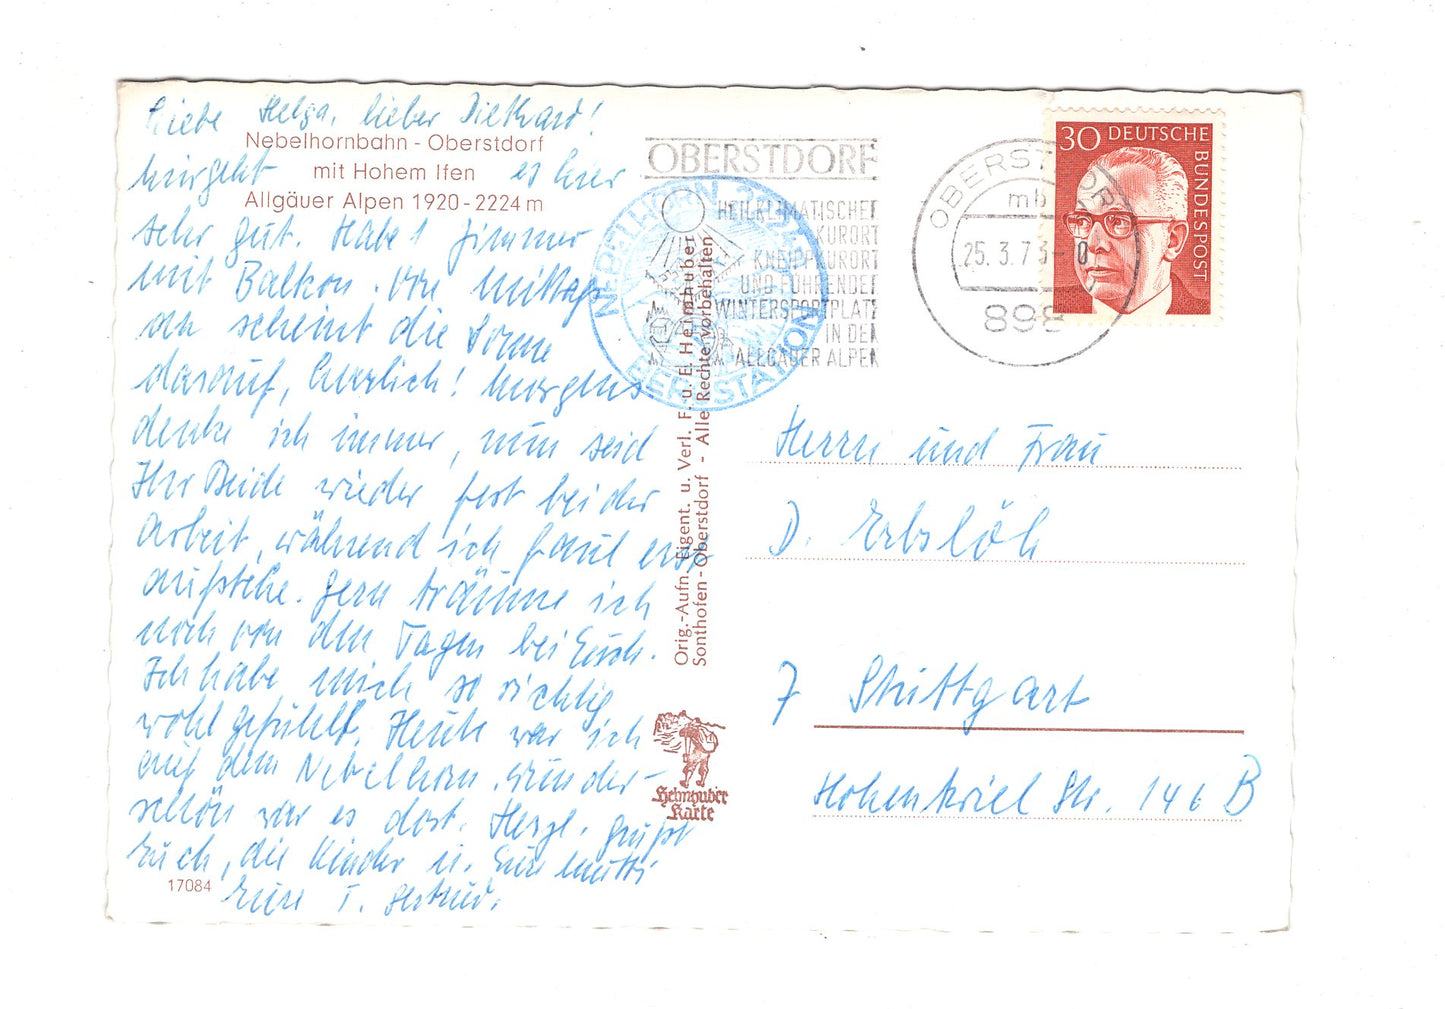 Liebe Helga, lieber Diethard!
Nebelhornbahn - Oberstdorf
mit Hohem Ifen
Allgäuer Alpen 1920 - 2224 m
Mir geht es hier
sehr gut. Habe 1 Zimmer
mit Balkon. Von Mittag
an scheint die Sonne
darauf, herrlich! Morgens
denke ich immer, nun seid
Ihr Beide wieder fest bei der
Arbeit, während ich faul erst
aufstehe. Gern träume ich
noch von den Tagen bei Euch.
Ich habe mich so richtig
wohl gefühlt. Heute war ich
auf dem Nebelhorn. Wunder-
schön war es dort. Herzl. grüßt
Euch, die Kinder u. Eure Mutti
Eure T. Gertrud.
17084
OBERSTDORF
HEILKLIMATISCHER
KURORT
KNEIPPKURORT
UND FÜHRENDER
WINTERSPORTPLATZ
IN DEN
ALLGÄUER ALPEN
NEBELHORN
BERGSTATION
Orig.-Aufn. Eigent. u. Verl. F. u. E. Heimhuber
Sonthofen - Oberstdorf - Alle Rechte vorbehalten
Heimhuber
Karte
OBERSTDORF
mb
25.3.73-
898
30 DEUTSCHE BUNDESPOST
Herrn und Frau
D. Erbslöh
7 Stuttgart
Hohenkriel Str. 146 B